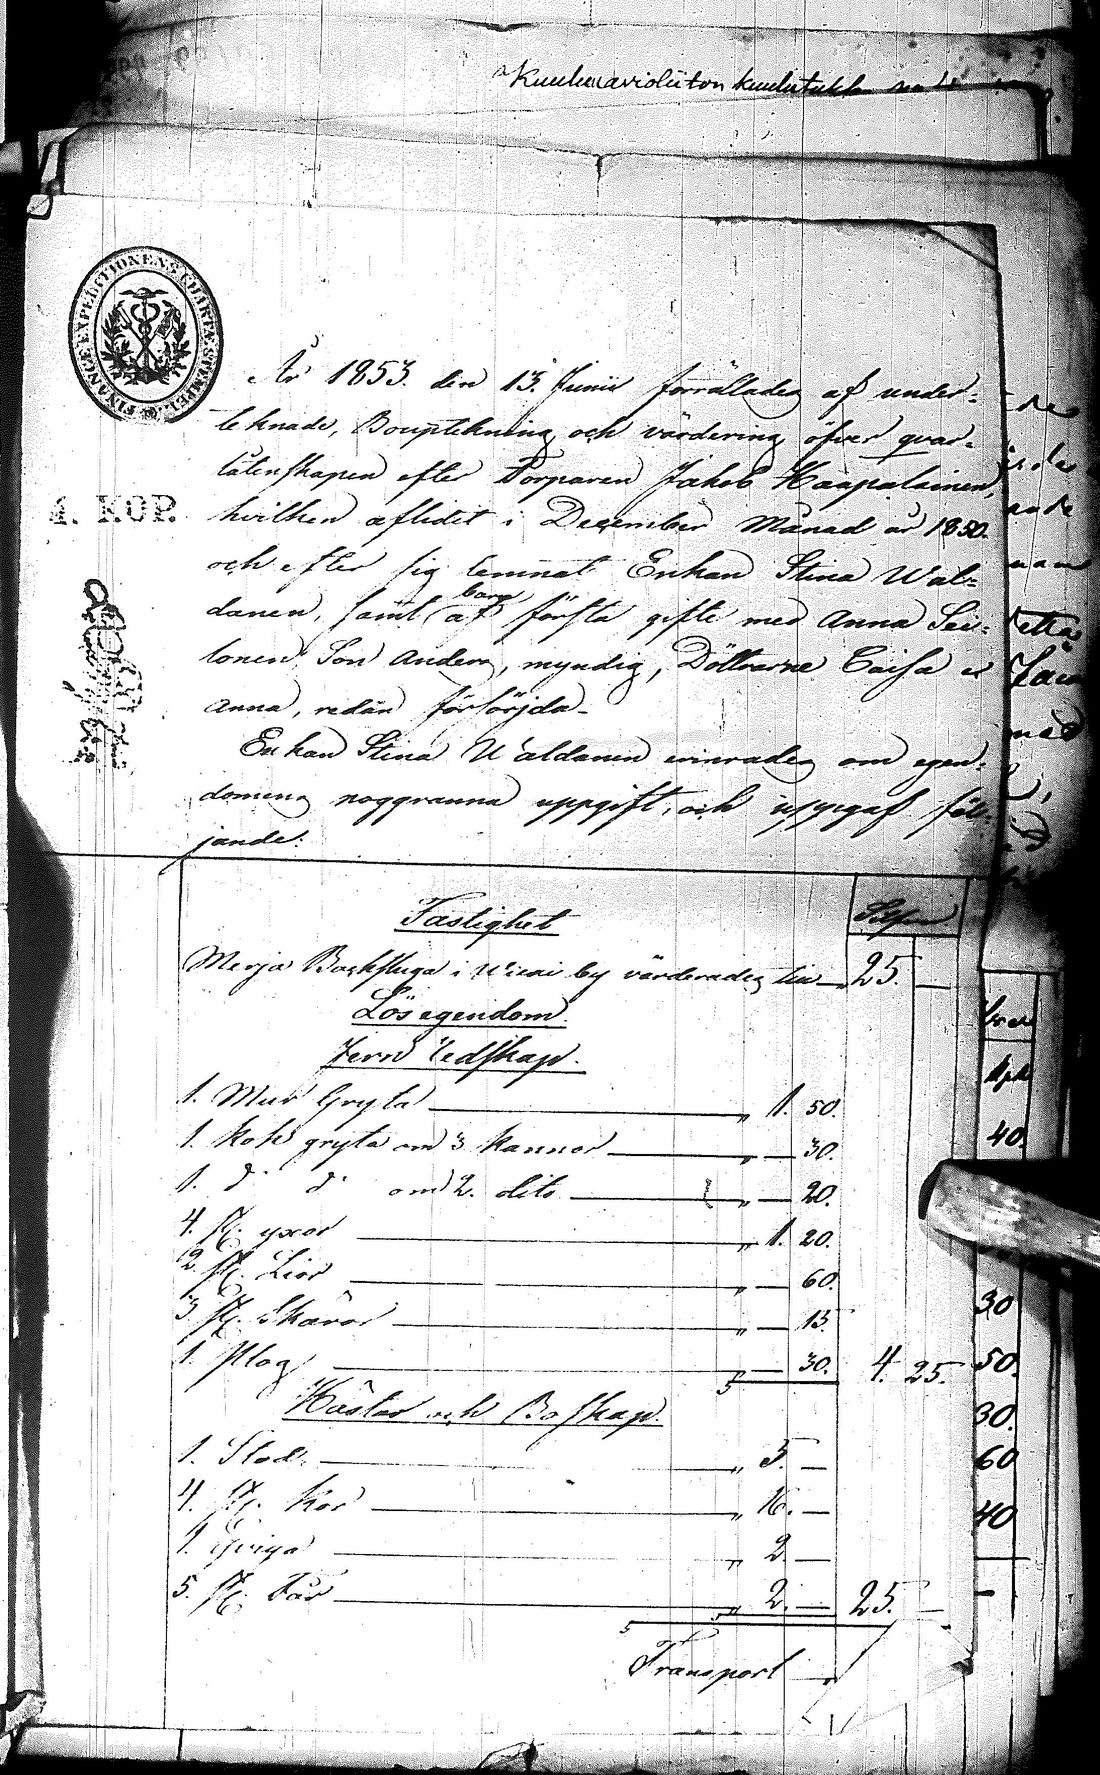 Kuulutusta
FINANCE EXPEDITIONENS CHARTÆ STEMPEL
4. KOP.
År 1853. den 13. Junii förrättades af under-
teknade, Bouptekning och värdering öfver qvar-
låtenskapen efter Torparen Jakob Haapalainen,
hvilken aflidet i December Månad år 1850.
och efter sig lemnat Enkan Stina Wal-
danen, samt af barn första gifte med Anna Sei-
lonen, Son Anders, myndig, Döttrarne Caisa o
Anna, redan försörjda.
Enkan Stina Waldanen erinrades om egen-
domens noggranna uppgift, och uppgaf föl-
jande:
Fastighet
Silfver
Merja Backstuga i by värderades till 25. —
Lösegendom.
Jern redskap.
1. Mur Gryta — „ 1. 50.
1. Kok gryta om 3 kannor — „ — 30.
1. d° d° om 2. dito — „ — 20.
4. St. yxor — „ 1. 20.
2. St. Liar — „ — 60.
3 St. Skäror — „ — 15.
1. Plog — „ — 30. 4. 25.
Hästar och Boskap.
1. Stod. — „ 5. —
4. St. Kor — „ 16. —
1. Qviga — „ 2 —
5. St. Får — „ 2. — 25. —
Transport
40.
30
50.
30.
60
40